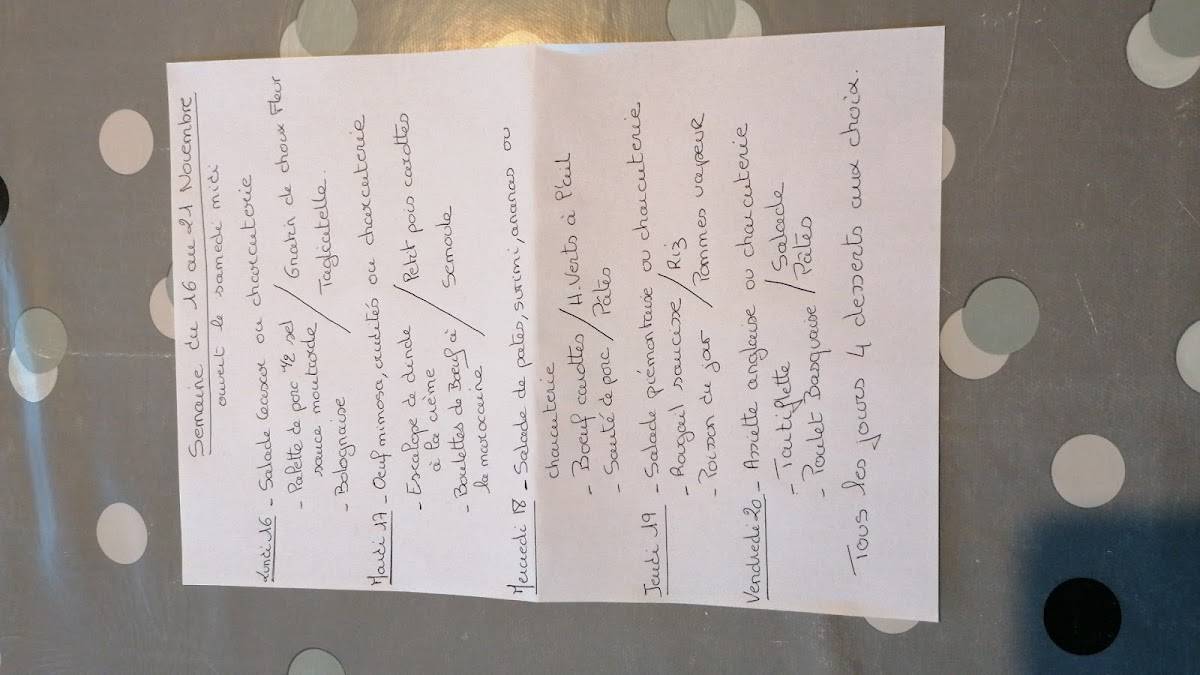 Semaine du 16 au 21 Novembre
ouvert le samedi midi
Lundi 16 - Salade César ou charcuterie
- Palette de porc 1/2 sel / Gratin de choux Fleur
sauce moutarde
- Bolognaise / Tagliatelle.
Mardi 17 - Oeuf mimosa, crudités ou charcuterie
- Escalope de dinde / Petit pois carottes
à la crème
- Boulettes de Bœuf à / Semoule
la marocaine
Mercredi 18 - Salade de pates, surimi, ananas ou
charcuterie
- Bœuf carottes / H. Verts à l'ail
- Sauté de porc / Pâtes
Jeudi 19 - Salade piémontaise ou charcuterie
- Rougail saucisse / Riz
- Poisson du jour / Pommes vapeur
Vendredi 20 - Assiette anglaise ou charcuterie
- Tartiflette / Salade
- Poulet Basquaise / Pâtes
Tous les jours 4 desserts aux choix.